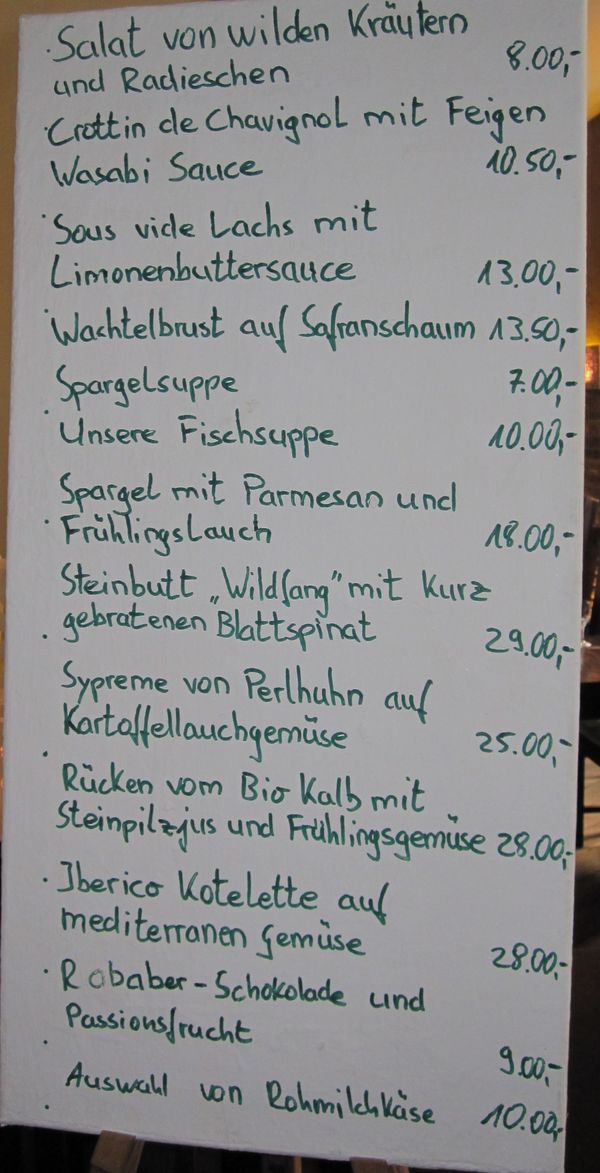 · Salat von wilden Kräutern
und Radieschen 8.00,-
· Crottin de Chavignol mit Feigen
Wasabi Sauce 10.50,-
· Sous vide Lachs mit
Limonenbuttersauce 13.00,-
· Wachtelbrust auf Safranschaum 13.50,-
Spargelsuppe 7.00,-
· Unsere Fischsuppe 10.00,-
Spargel mit Parmesan und
· Frühlingslauch 18.00,-
Steinbutt „Wildfang" mit Kurz
· gebratenen Blattspinat 29.00,-
Sypreme von Perlhuhn auf
Kartoffellauchgemüse 25.00,-
· Rücken vom Bio Kalb mit
Steinpilzjus und Frühlingsgemüse 28.00,-
· Iberico Kotelette auf
mediterranen Gemüse 28.00,-
· Rababer-Schokolade und
Passionsfrucht 9.00,-
· Auswahl von Rohmilchkäse 10.00,-
·